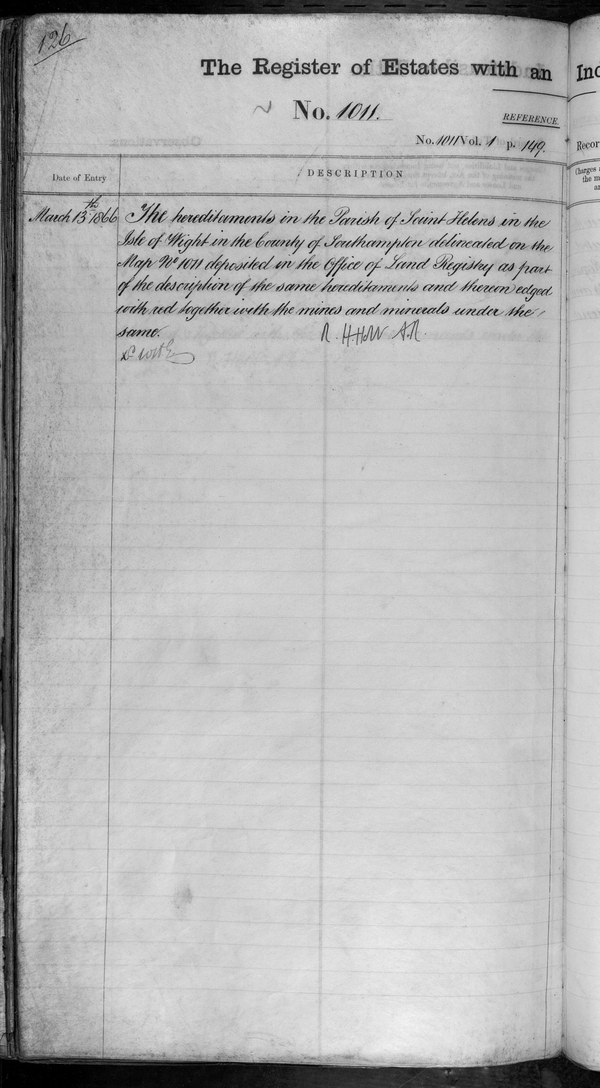 126
The Register of Estates with an
No. 1011.
REFERENCE.
No. 1011 Vol. 1 p. 149.
Date of Entry
DESCRIPTION
March 13th 1866
The hereditaments in the Parish of Saint Helens in the
Isle of Wight in the County of Southampton delineated on the
Map No 1011 deposited in the Office of Land Registry as part
of the description of the same hereditaments and thereon edged
with red together with the mines and minerals under the
same.
R. H. HW A.R.
Ind
Recor
Charges
the m
an